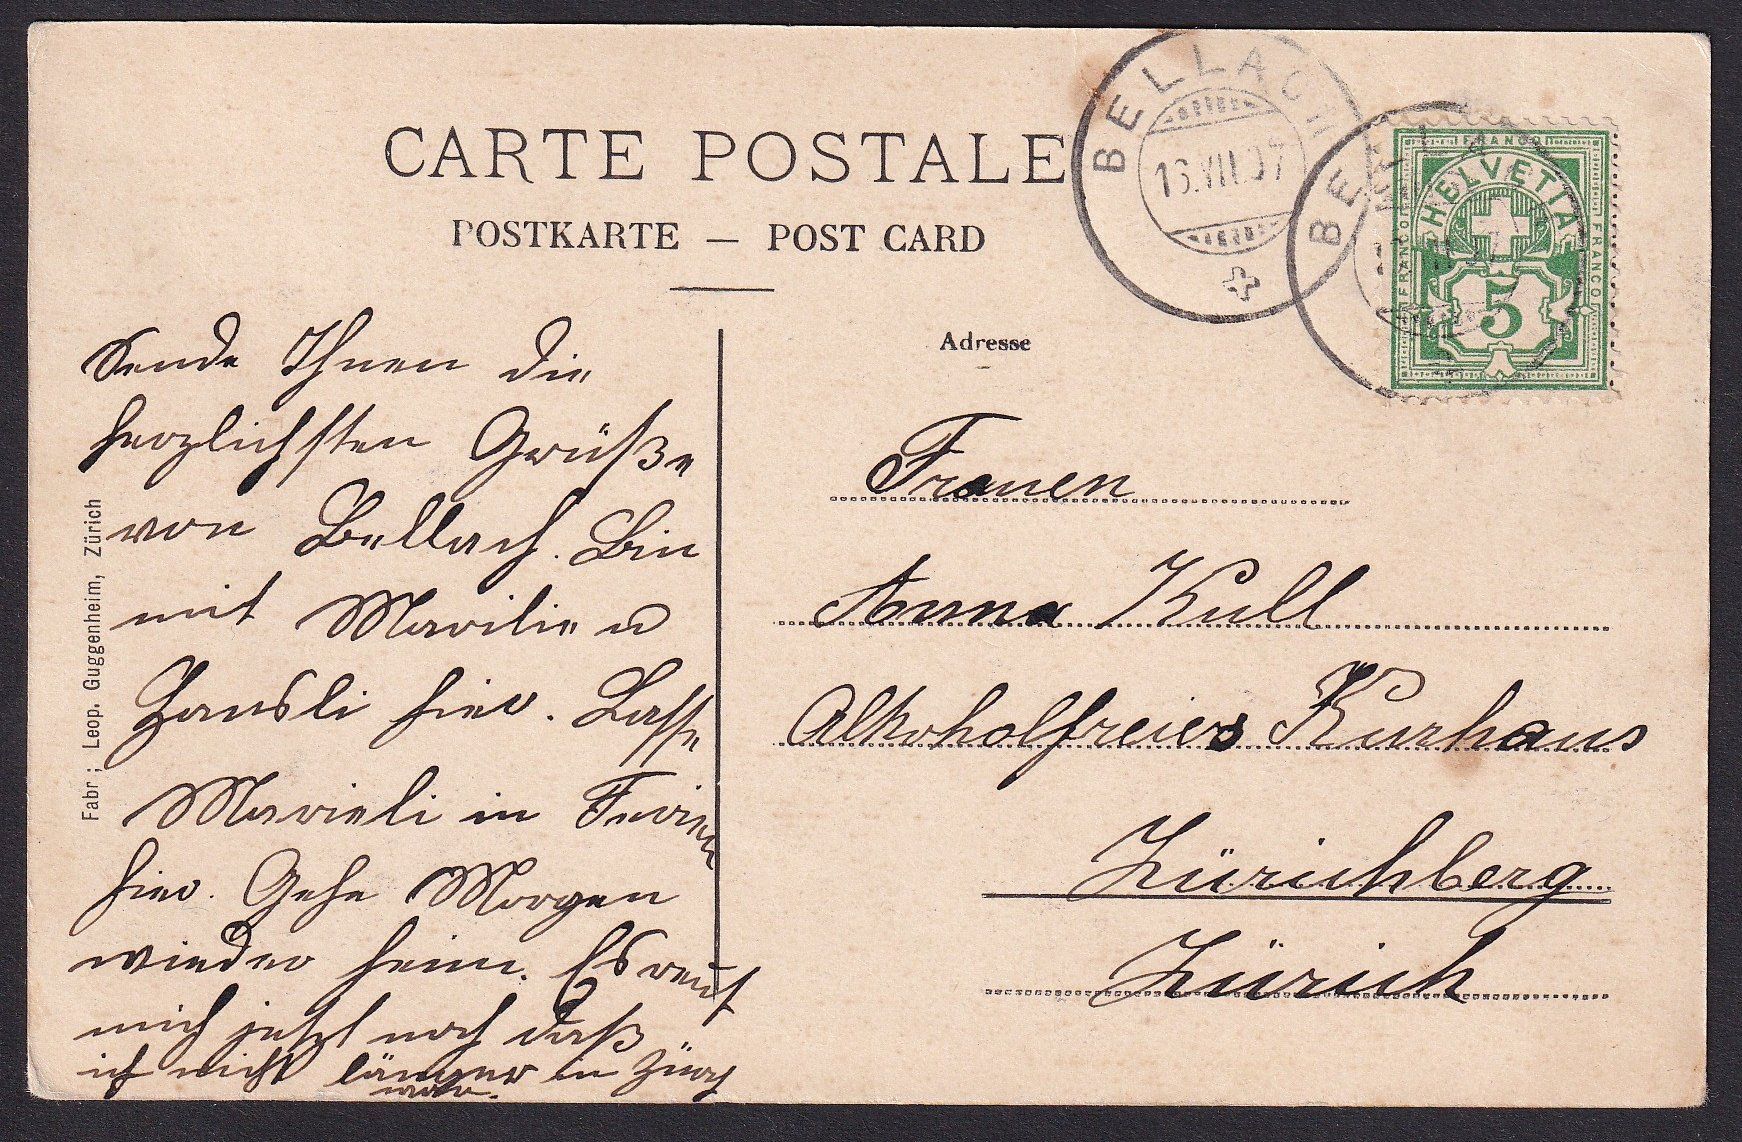 CARTE POSTALE
POSTKARTE — POST CARD
BELLACH
16.VII.07
BE
FRANCO
HELVETIA
FRANCO
FRANCO
5
Adresse
Sende Ihnen die
herzlichsten Grüße
von Bellach. Bin
mit Marili u
Hansli hier. Lasse
Marieli in Ferien
hier. Gehe Morgen
wieder heim. Es reut
mich jetzt noch daß
ich nicht länger in Zürich
war.
Frauen
Anna Kull
Alkoholfreies Kurhaus
Zürichberg
Zürich
Fabr; Leop. Guggenheim, Zürich